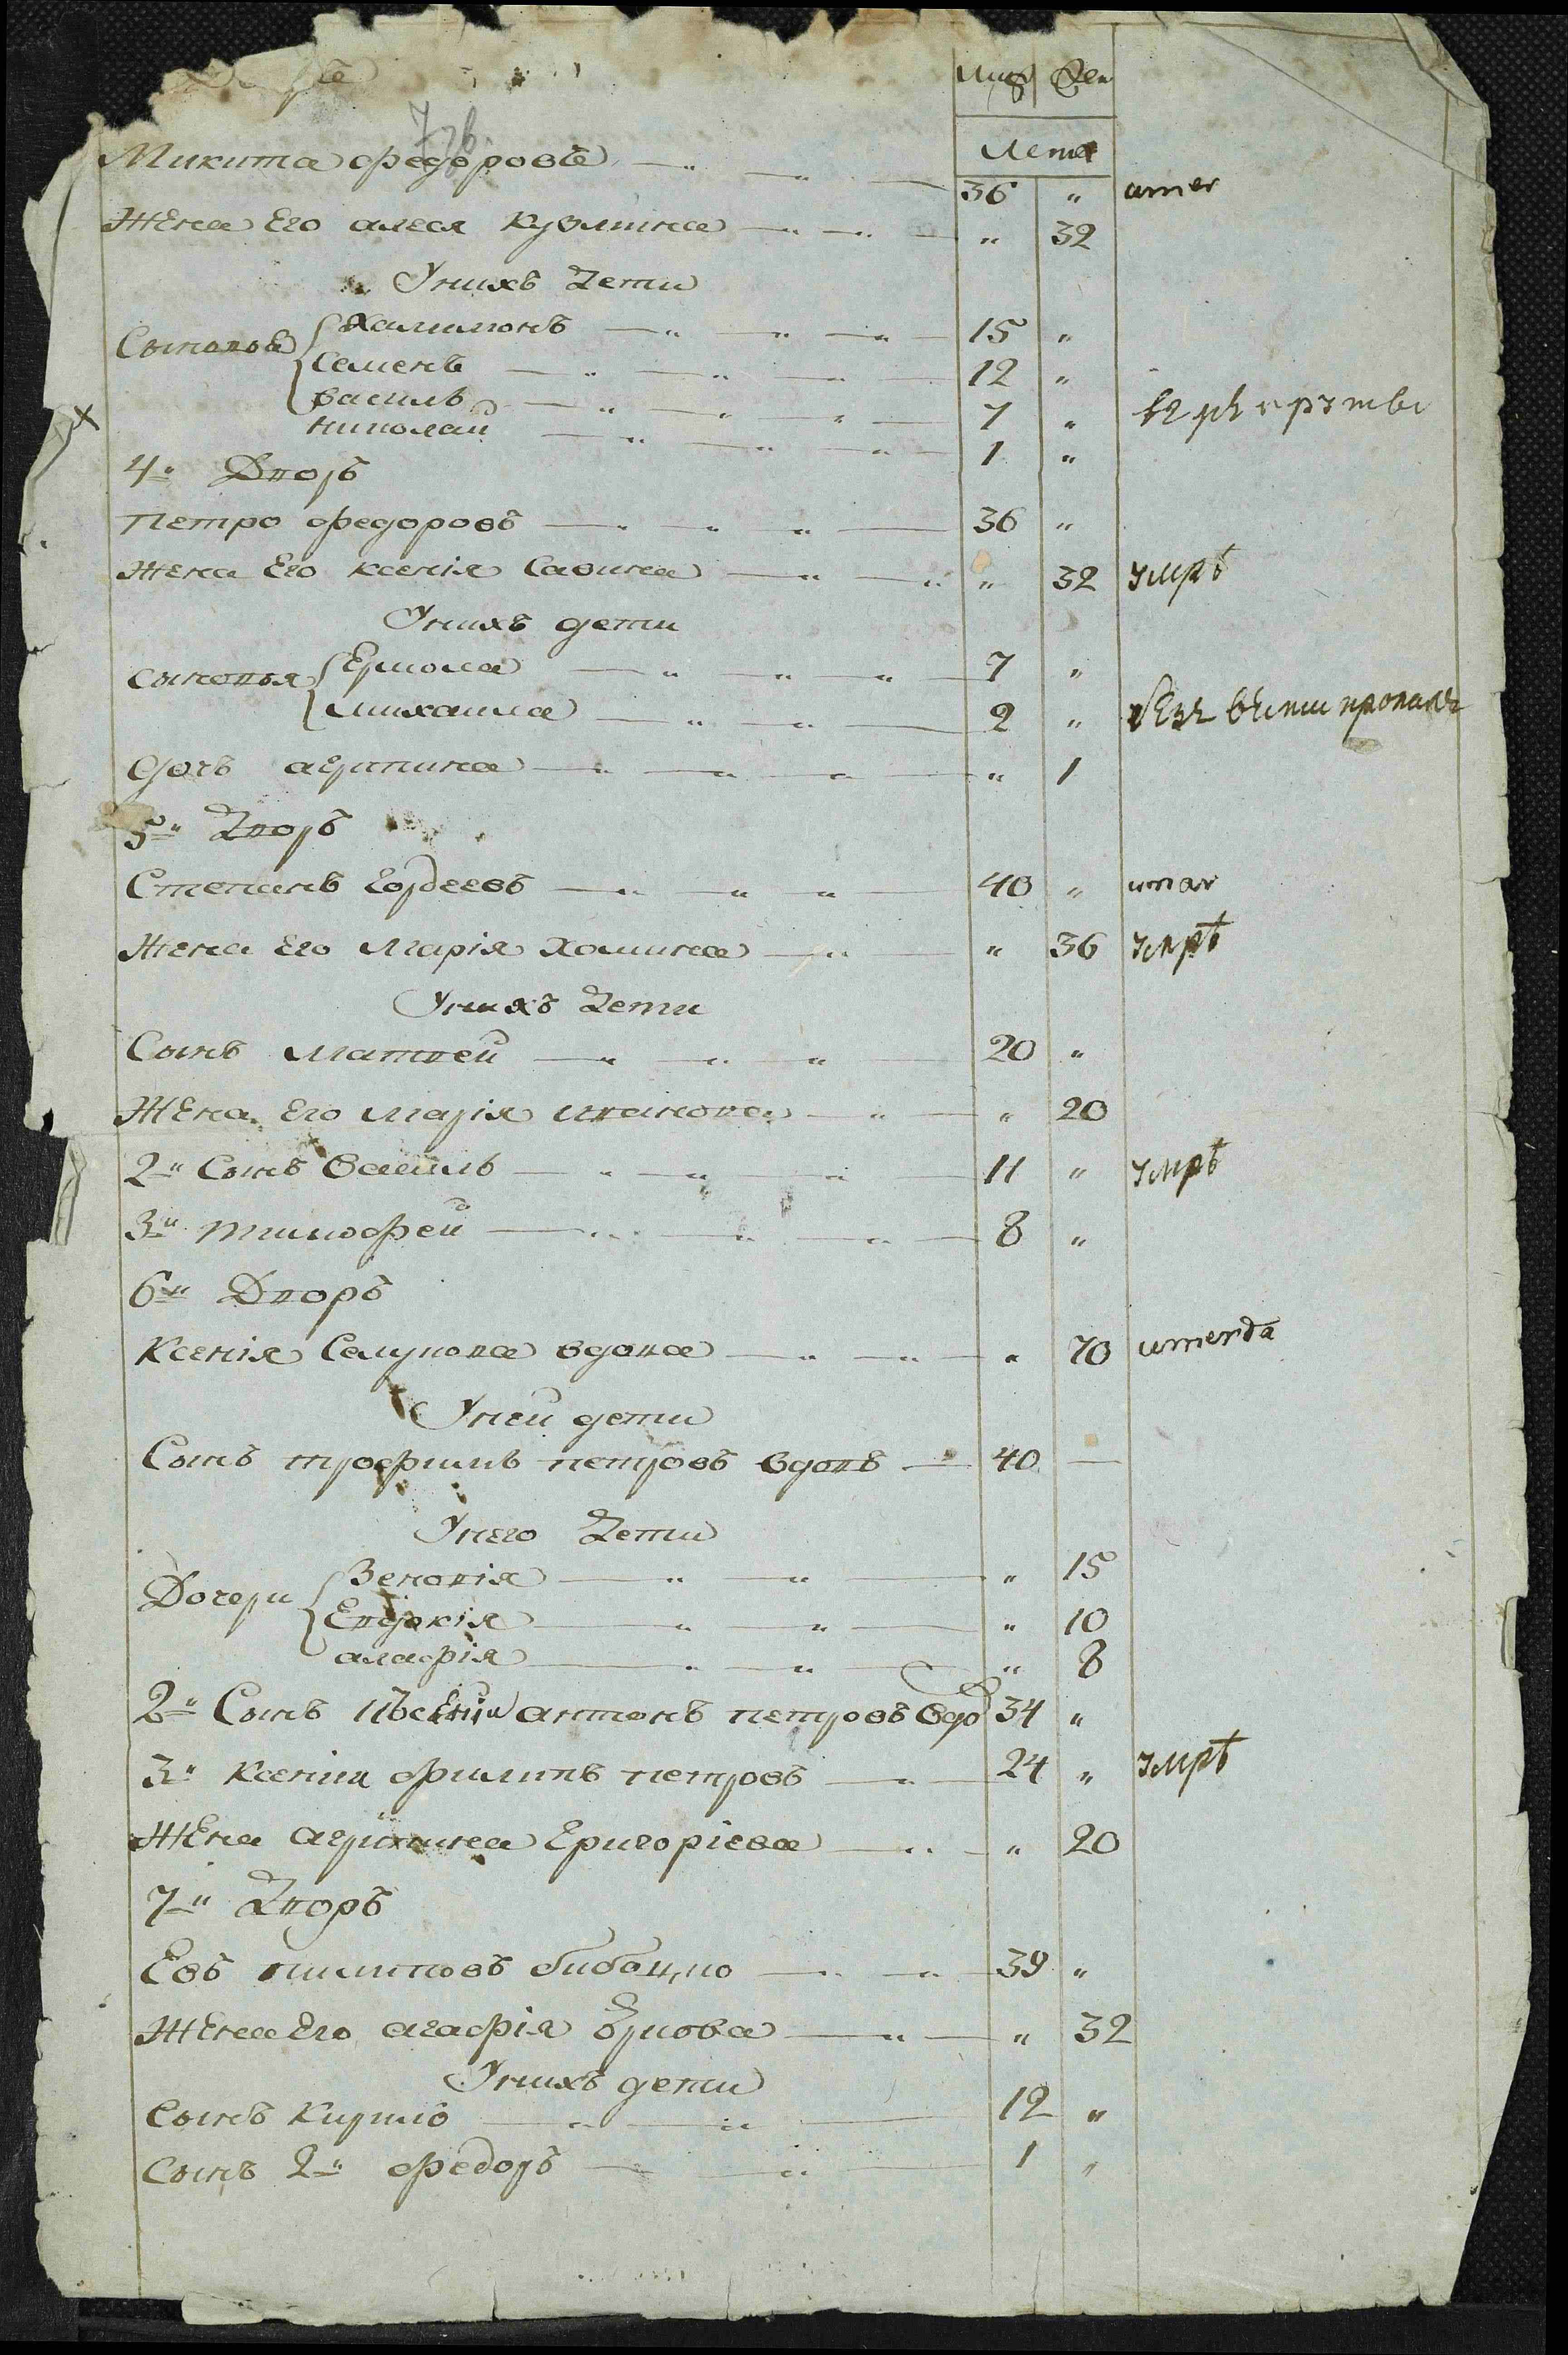 Муж Жен
7зв.
Лета
Микита Федоровъ 36 " umer
Жена Его алеся кузмина " 32
У нихъ Дети
Сыновя Халимонъ 15 "
Семенъ 12 "
василь 7 "
николай 1 "
4й Дворъ
Петро федоровъ 36 "
Жена Его ксенія Савина " 32 умрѣ
У нихъ дети
Сыновья Ермола 7 "
Михаила 2 " безъ вѣсти пропалъ
Дочь агрипина " 1
5й Дворъ
Степанъ Гордеевъ 40 " umar
Жена Его Марія Хомина " 36 умрѣ
У нихъ Дети
Сынъ Матвей 20 "
Жена Его Марія иванова " 20
2й Сынъ Василь 11 " умрѣ
3й тимофей 8 "
6й Дворъ
Ксенія вдова " 70
У ней дети
Сынъ трофимъ петровъ вдовъ 40 —
У него Дети
Дочери Зеновія " 15
Евдокія " 10
агафія " 8
2й Сынъ антонъ петровъ вдо 34 "
3й ксеніи филипъ петровъ 24 " умрѣ
Жена агрипина Григоріева " 20
7й Дворъ
Евъ пилиповъ 39 "
Жена Его агафія " 32
У нихъ дети
Сынъ Кирило 12 "
Сынъ 2й федоръ 1 "